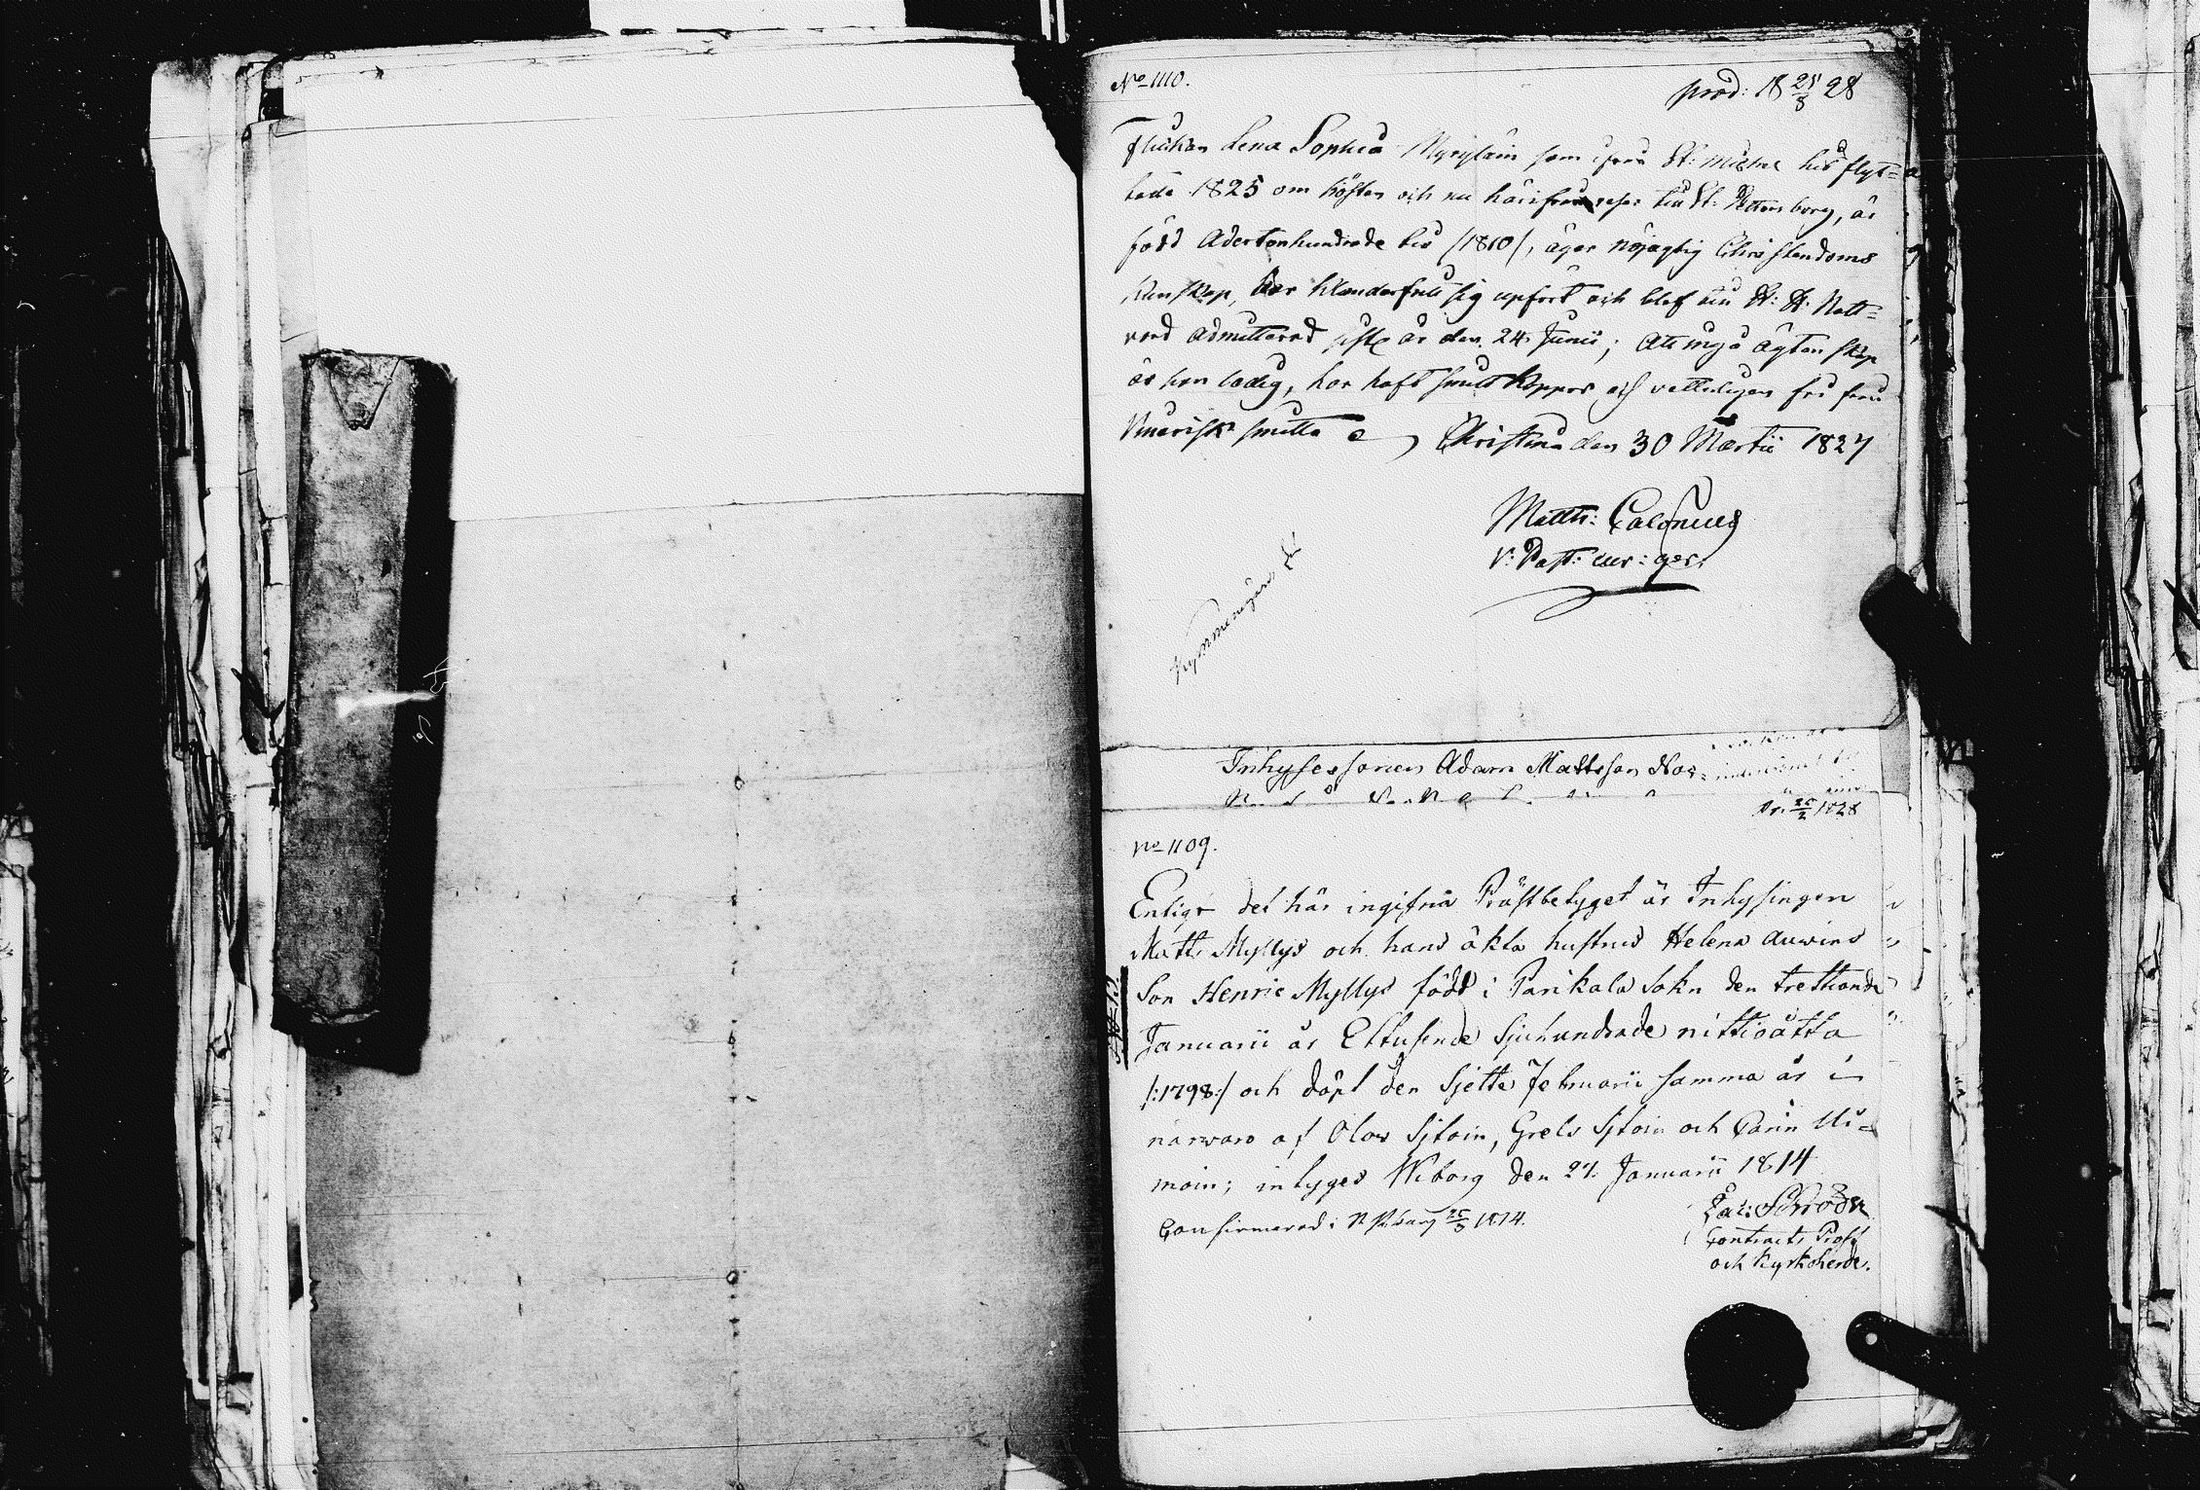 No 1110.
prod: 18 25/8 28
Flickan Lena Sophia som ifrån St: Michel hit flyt=
tade 1825 om hösten och nu härifrån reser till St: Pettersborg, är
född Adertonhundrade tio /1810/, äger nöjagtig Christendoms
kunskap, har klanderfritt sig upfört och blef till H: H: Natt=
vard admitterad sistl. år den 24 Junii; Att ingå ägtenskap
är hon ledig, har haft smittkoppor och vetterligen fri från
Venerisk smitta Christina den 30 Martii 1827
Matth: Calonius
V: Past: cur: ger.
Inhysessonen Adam Mattsson
Pr. 25/2 1828
No 1109.
Enligt det här ingifna Prästbetyget är Inhysingen
Matts Myllys och hans äkta hustrus Helena Auwins
Son Henric Myllys född i Parikala Sokn den trettionde
Januarii år Ettusende Sjuhundrade nittioåtta
/:1798:/ och döpt den Sjette Februarii samma år i
närwaro af Olov Sjtoin, Grels Sjtoin och Carin
moin; intygas Wiborg den 27. Januarii 1814
Schröder
Contracts Prost
och Kyrkoherde.
Confirmerad i 25/3 1814.